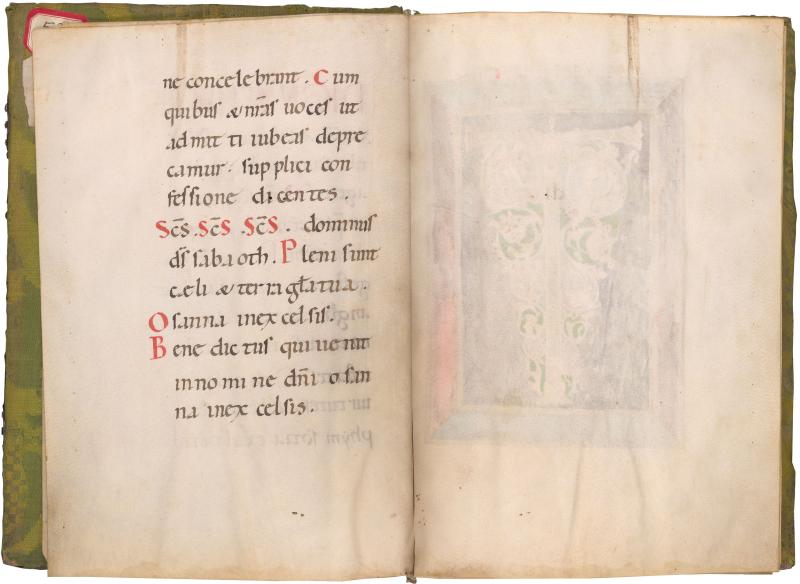 ne concelebrant. Cum
quibus & nr̄as uoces ut
admitti iubeas depre
camur. supplici con
fessione dicentes.
Sc̄s Sc̄S Sc̄S. dominus
ds̄ sabaoth. Pleni sunt
cæli & terra gl̄a tua.
Osanna inexcelsis.
Benedictus qui uenit
innomine dn̄i osan
na inexcelsis.